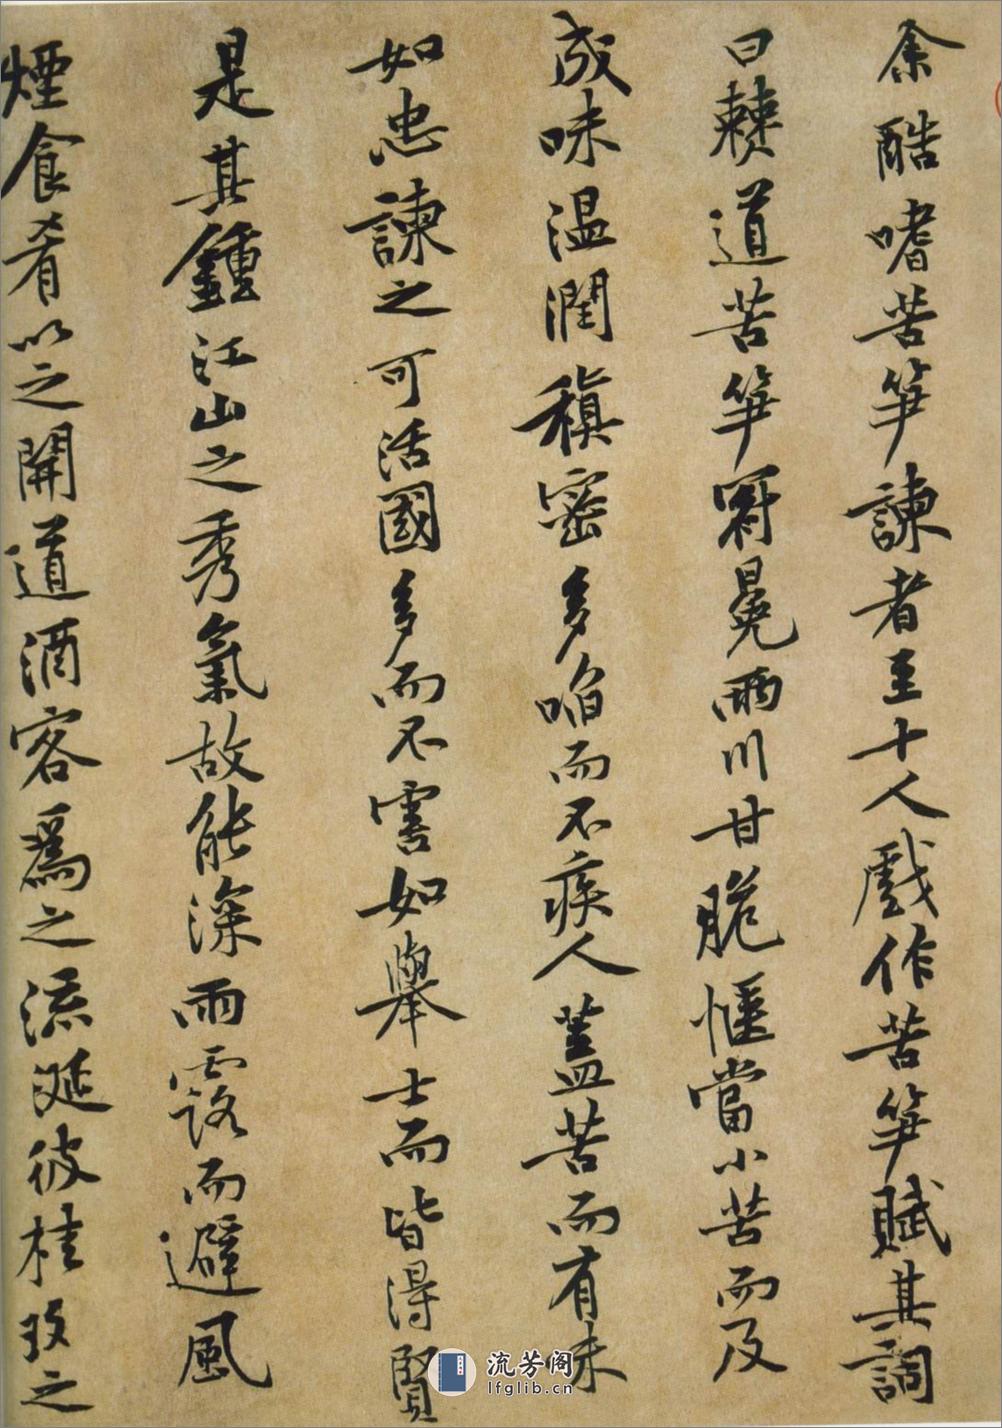 余酷嗜苦笋諫者至十人戲作苦笋賦其詞
曰僰道苦笋冠冕兩川甘脆愜當小苦而反
成味溫潤稹密多啗而不疾人蓋苦而有味
如忠諫之可活國多而不害如舉士而皆得賢
是其鍾江山之秀氣故能深雨露而避風
煙食肴以之開道酒客爲之流涎彼桂玫之
流芳阁
lfglib.cn